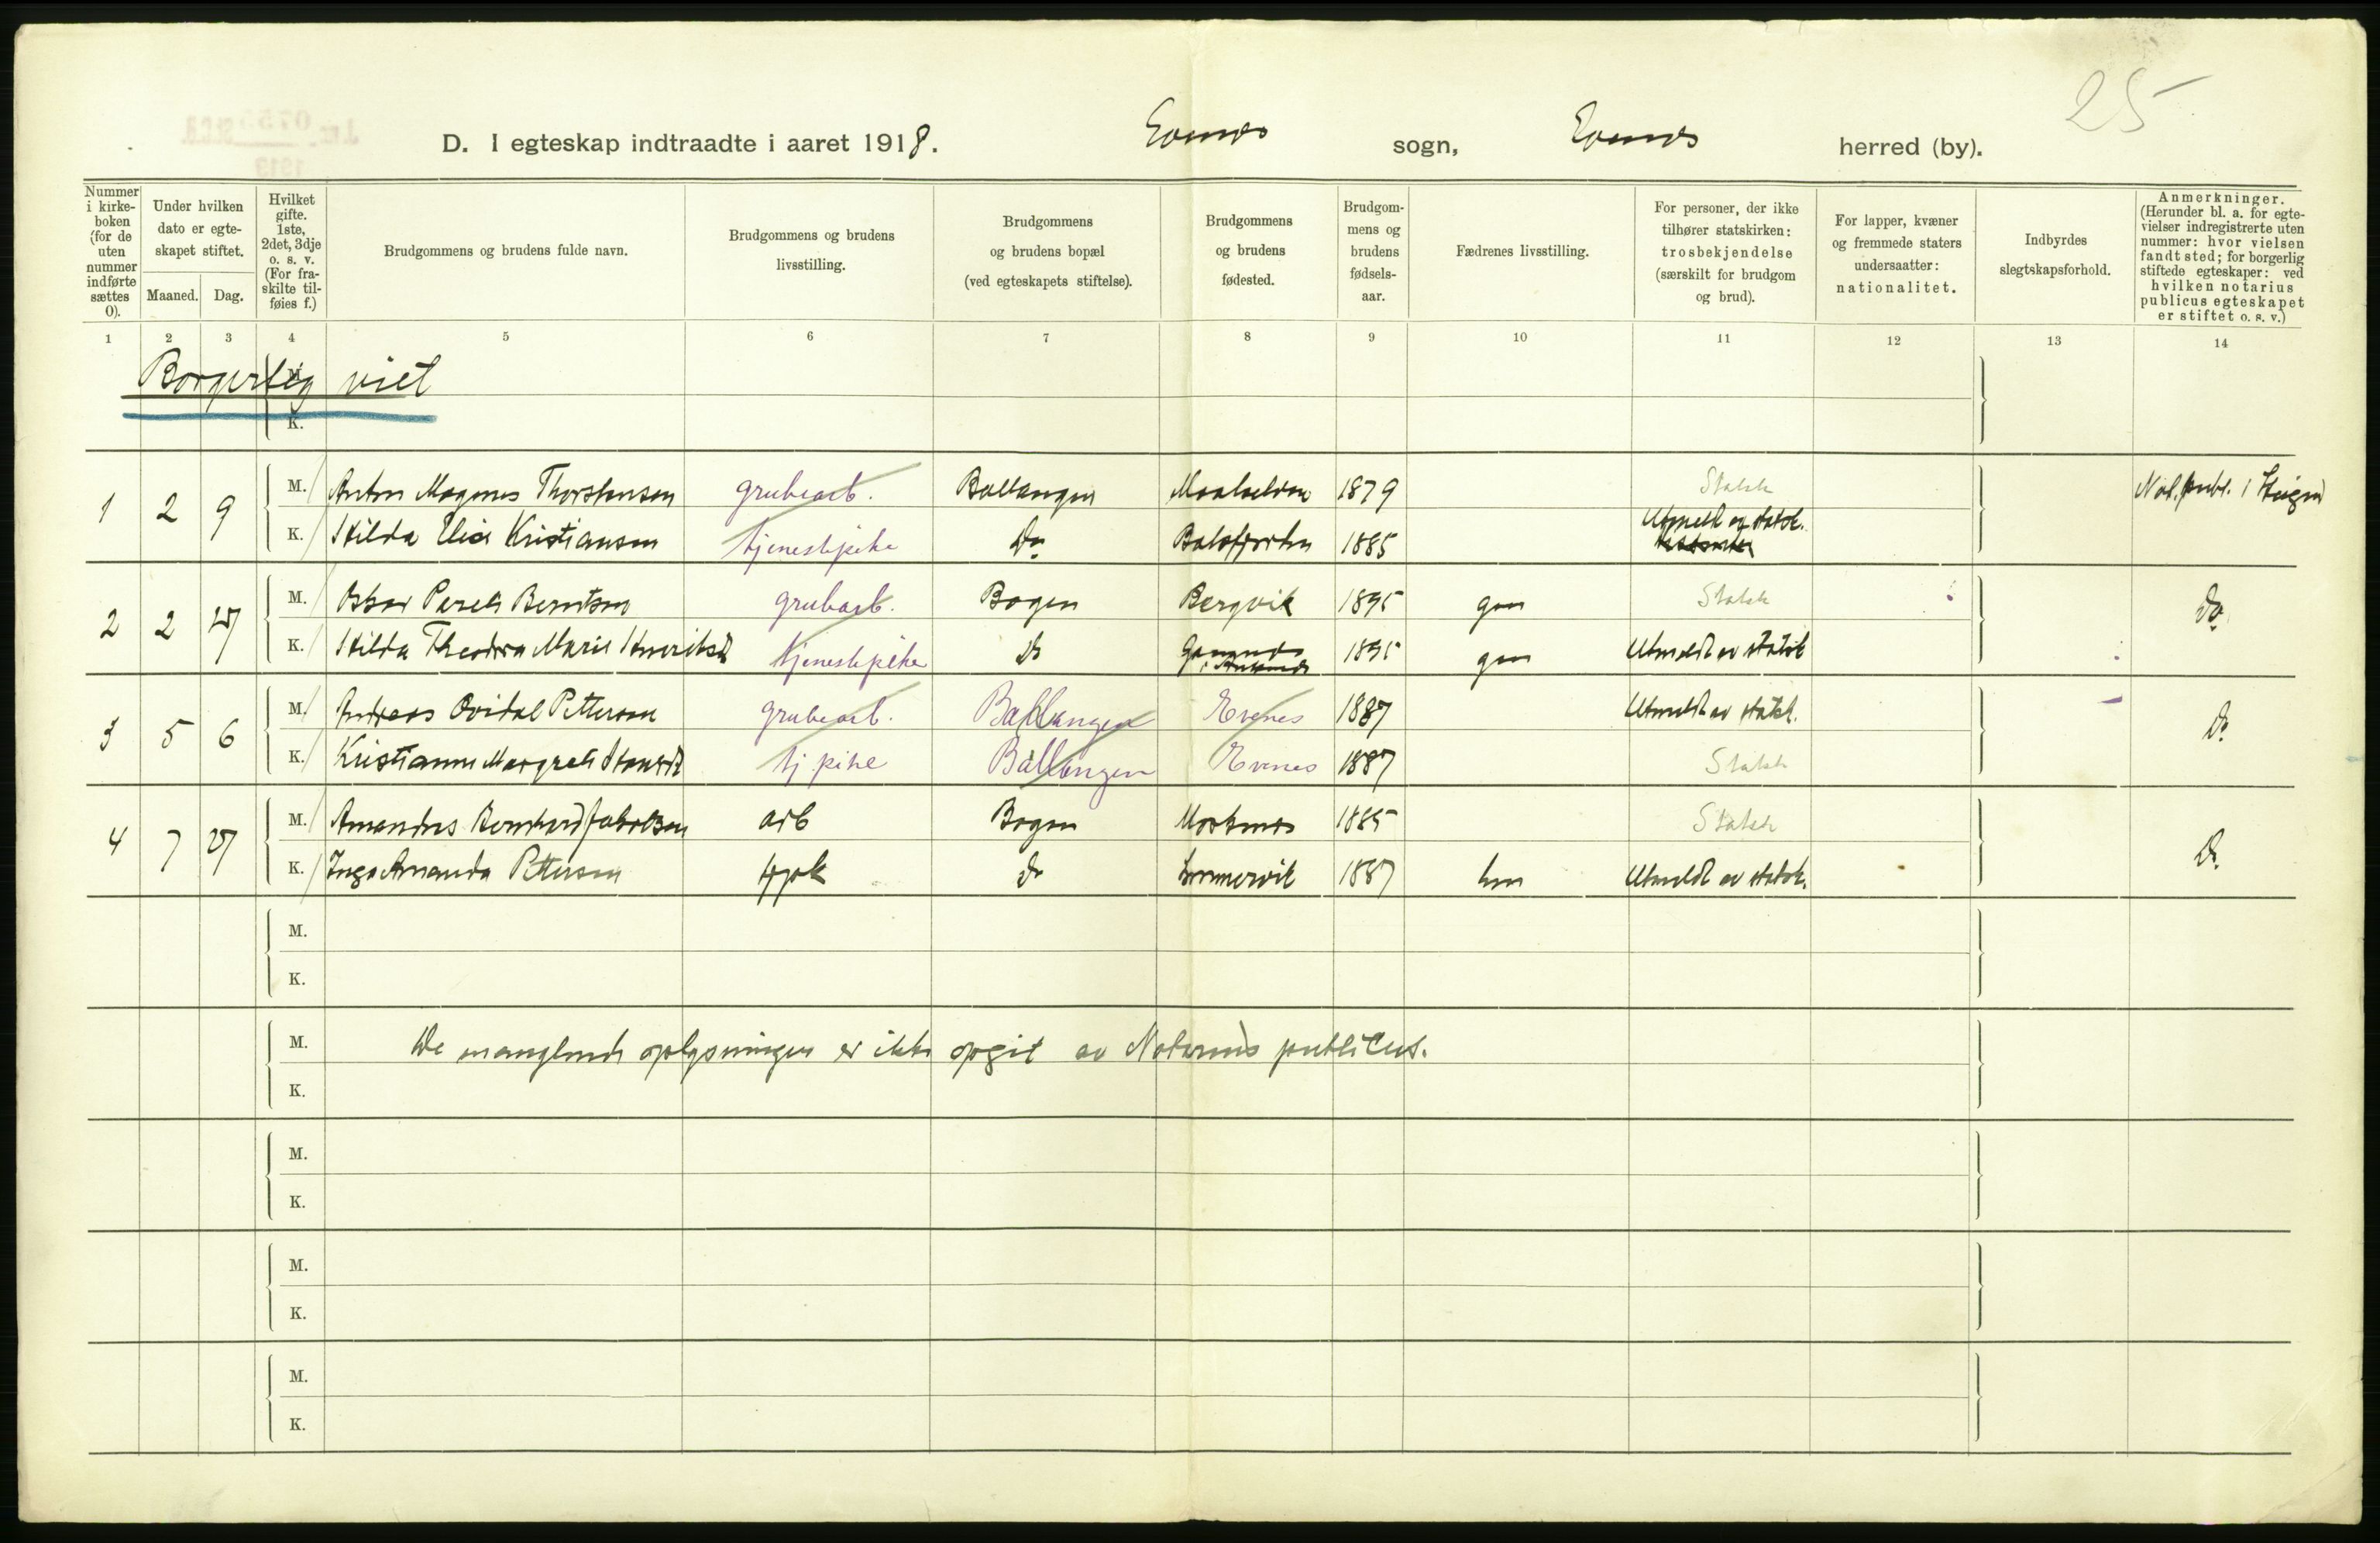 25
D. I egteskap indtraadte i aaret 1918. Evenes sogn, Evenes herred (by).
Nummer i kirkeboken (for de uten nummer indførte sættes 0).
Under hvilken dato er egteskapet stiftet.
Maaned. Dag.
Hvilket gifte. 1ste, 2det, 3dje o. s. v. (For fraskilte tilføies f.)
Brudgommens og brudens fulde navn.
Brudgommens og brudens livsstilling.
Brudgommens og brudens bopæl (ved egteskapets stiftelse).
Brudgommens og brudens fødested.
Brudgommens og brudens fødselsaar.
Fædrenes livsstilling.
For personer, der ikke tilhører statskirken: trosbekjendelse (særskilt for brudgom og brud).
For lapper, kvæner og fremmede staters undersaatter: nationalitet.
Indbyrdes slegtskapsforhold.
Anmerkninger. (Herunder bl. a. for egtevielser indregistrerte uten nummer: hvor vielsen fandt sted; for borgerlig stiftede egteskaper: ved hvilken notarius publicus egteskapet er stiftet o. s. v.)
1 2 3 4 5 6 7 8 9 10 11 12 13 14
M.
Borgerlig viet
K.
1 2 9 M. Anton Magnus Thorstensen grubearb. Ballangen Maalselven 1879 Statsk Not. publ. i Steigen
K. Hilda Elise Kristiansen tjenestepike Do Balsfjorden 1885 Utmeldt av statsk.
2 2 27 M. Oskar Pareli Berntsen grubearb. Bogen Bergvik 1895 gm Statsk Do
K. Hilda Theodora Marie Henriksd tjenestepike Do 1895 gm Utmeldt av statsk
3 5 6 M. Andreas Ovidal Pettersen grubearb. Ballangen Evenes 1887 Utmeldt av statsk. Do
K. Kristianne Margrete tj pike Ballangen Evenes 1887 Statsk
4 7 27 M. Amandus Bernhard Jakobsen arb Bogen 1885 Statsk Do
K. Inga Amanda Pettersen Do 1887 Utmeldt av statsk.
M.
K.
M. De manglende oplysninger er ikke opgit av Notarius publicus.
K.
M.
K.
M.
K.
M.
K.